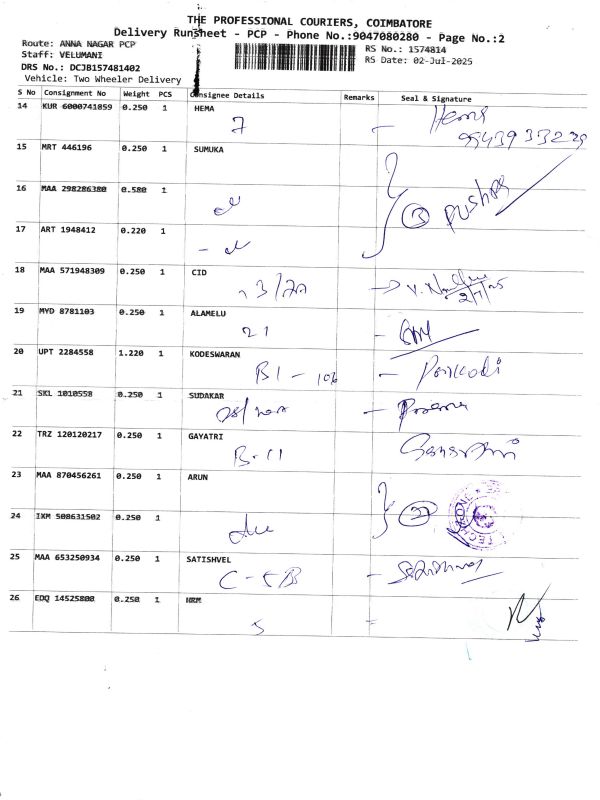 THE PROFESSIONAL COURIERS, COIMBATORE
Delivery Runsheet - PCP - Phone No.:9047080280 - Page No.:2
Route: ANNA NAGAR PCP
Staff: VELUMANI
DRS No.: DCJB157481402
Vehicle: Two Wheeler Delivery
RS No.: 1574814
RS Date: 02-Jul-2025
S No Consignment No Weight PCS Consignee Details Remarks Seal & Signature
14 KUR 6000741059 0.250 1 HEMA
7 - Hema
9943933229
15 MRT 446196 0.250 1 SUMUKA
16 MAA 298286380 0.580 1
3 pushpa
17 ART 1948412 0.220 1
18 MAA 571948309 0.250 1 CID
2/7/25
19 MYD 8781103 0.250 1 ALAMELU
21 -
20 UPT 2284558 1.220 1 KODESWARAN
B1 - 106 - Ponkodi
21 SKL 1010558 0.250 1 SUDAKAR
22 TRZ 120120217 0.250 1 GAYATRI
B-11
23 MAA 870456261 0.250 1 ARUN
24 IKM 508631502 0.250 1
25 MAA 653250934 0.250 1 SATISHVEL
C - 5B -
26 EDQ 14525800 0.250 1 HRM
5